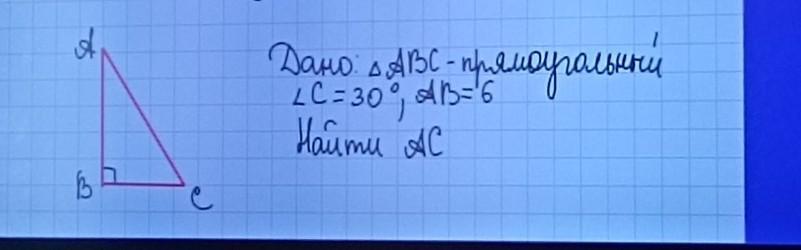 A
Дано: △ABC - прямоугольный
∠C = 30°, AB = 6
Найти AC
B
C